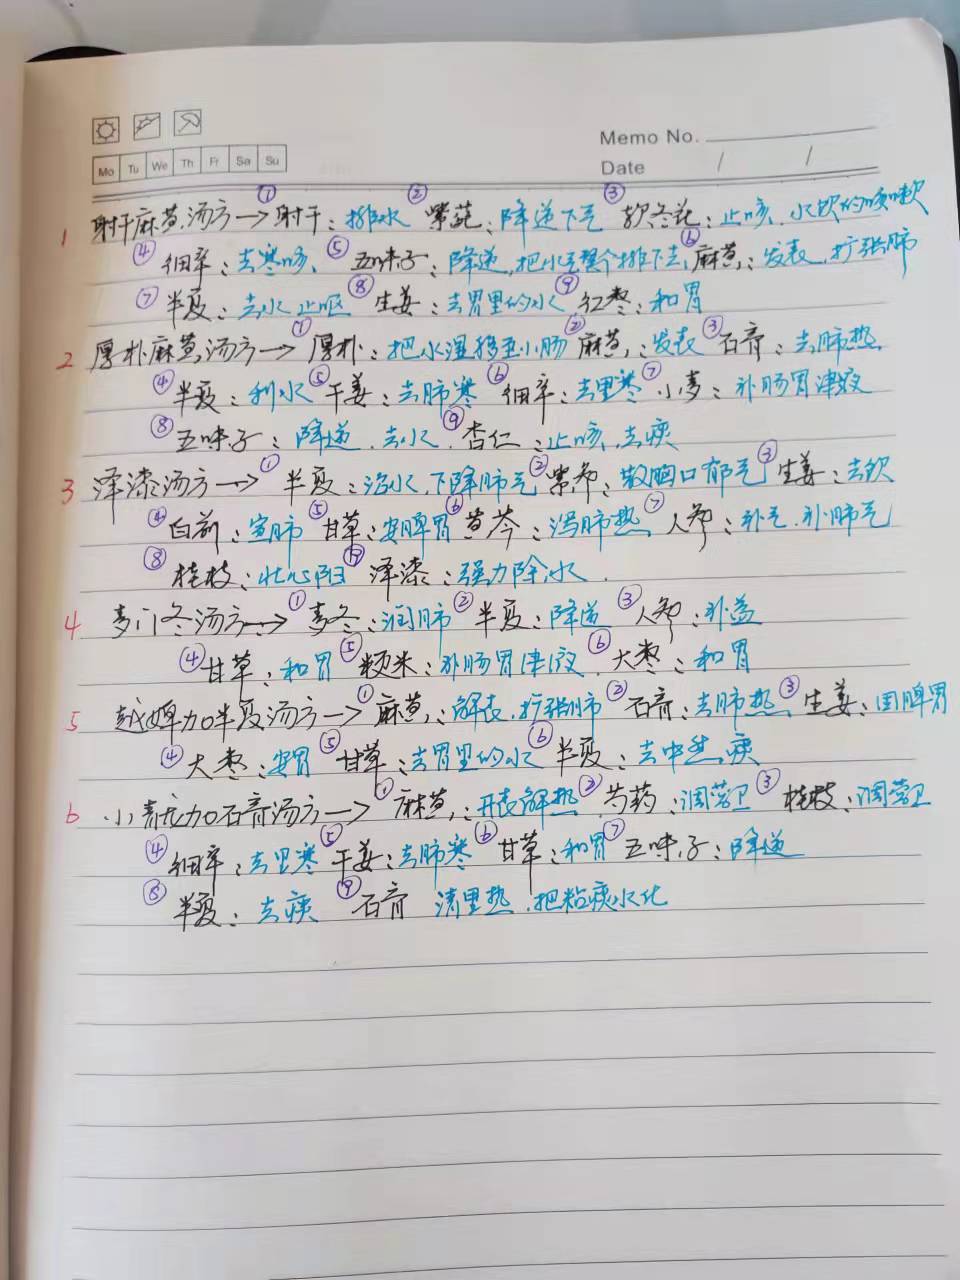 Memo No.
Mo Tu We Th Fr Sa Su
Date / /
1 射干麻黄汤方→①射干：排水 ②紫菀：降逆下气 ③款冬花：止咳、水饮的咳嗽
④细辛：去寒咳、⑤五味子：降逆，把水气整个排下去 ⑥麻黄：发表，扩张肺
⑦半夏：去水止呕 ⑧生姜：去胃里的水 ⑨红枣：和胃
2 厚朴麻黄汤方→①厚朴：把水湿移至小肠 ②麻黄：发表 ③石膏：去肺热
④半夏：利水 ⑤干姜：去肺寒 ⑥细辛：去里寒 ⑦小麦：补肠胃津液
⑧五味子：降逆、去水 ⑨杏仁：止咳、去痰
3 泽漆汤方→①半夏：治水、下降肺气 ②紫参：散胸口郁气 ③生姜：去饮
④白前：宣肺 ⑤甘草：安脾胃 ⑥黄芩：泻肺热 ⑦人参：补气、补肺气
⑧桂枝：壮心阳 泽漆：强力除水.
4 麦门冬汤方→①麦冬：润肺 ②半夏：降逆 ③人参：补益
④甘草：和胃 ⑤粳米：补肠胃津液 ⑥大枣：和胃
5 越婢加半夏汤方→①麻黄：解表，扩张肺 ②石膏：去肺热 ③生姜：固脾胃
④大枣：安胃 ⑤甘草：去胃里的水 ⑥半夏：去中焦痰
6 小青龙加石膏汤方→①麻黄：开表解热 ②芍药：调营卫 ③桂枝：调营卫
④细辛：去里寒 ⑤干姜：去肺寒 ⑥甘草：和胃 ⑦五味子：降逆
⑧半夏：去痰 ⑨石膏 清里热，把粘痰水化